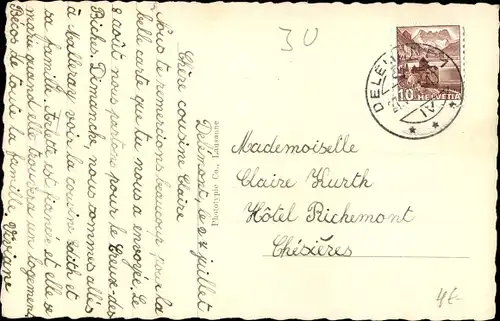 Delémont, le 27 juillet
Chère cousine Claire
Nous te remercions beaucoup pour la
belle carte que tu nous a envoyée. Le
8 août nous partons pour le Creux-des
Biches. Dimanche, nous sommes allés
à Malleray voir la cousine Edith et
sa famille. Arlette est fiancée et elle se
marie quand elle trouvera un logement.
Bécos de toute la famille. Viviane
Phototypie Co., Lausanne
30
10 HELVETIA
DELÉMONT
Mademoiselle
Claire Kurth
Hôtel Richemont
Chésières